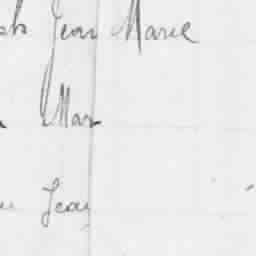 Jean Marie
Mar
Jean